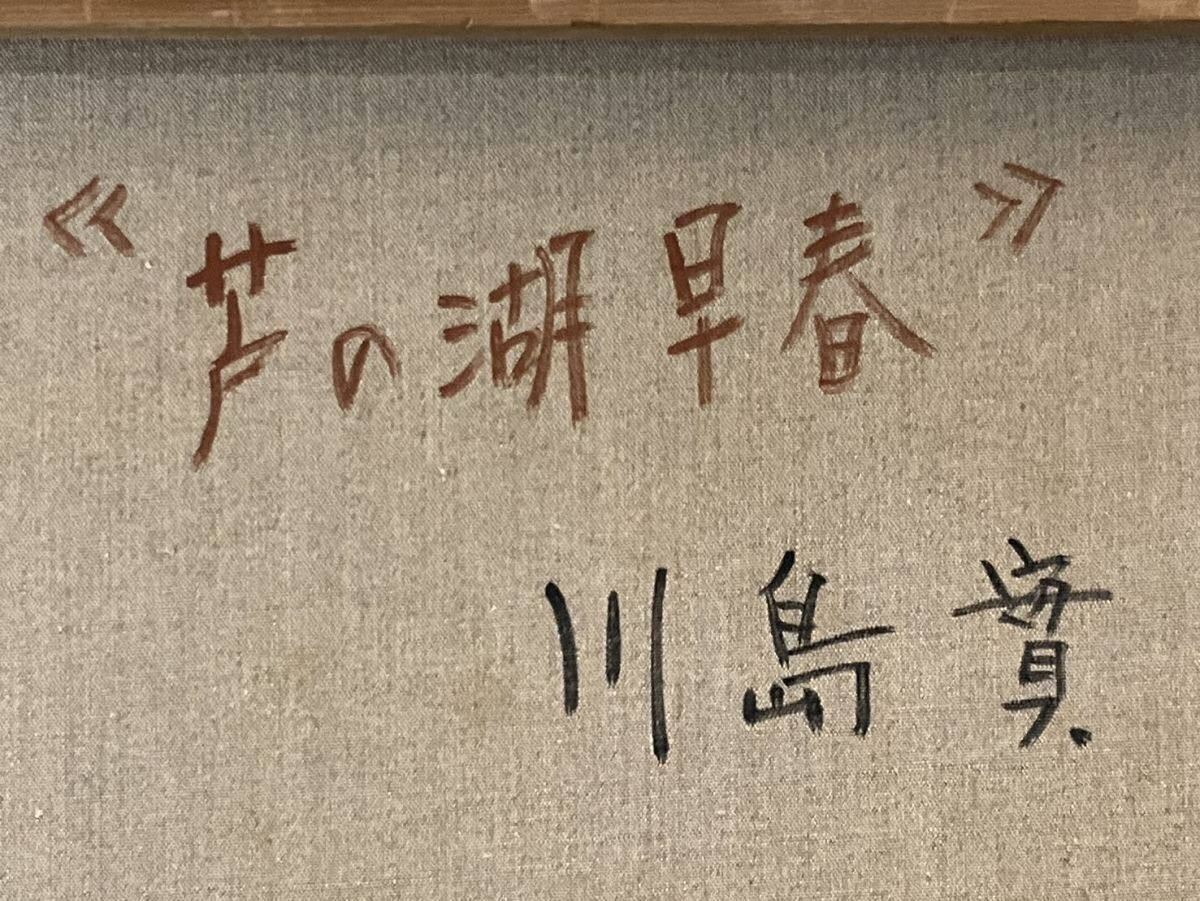 ≪芦の湖早春≫
川島實